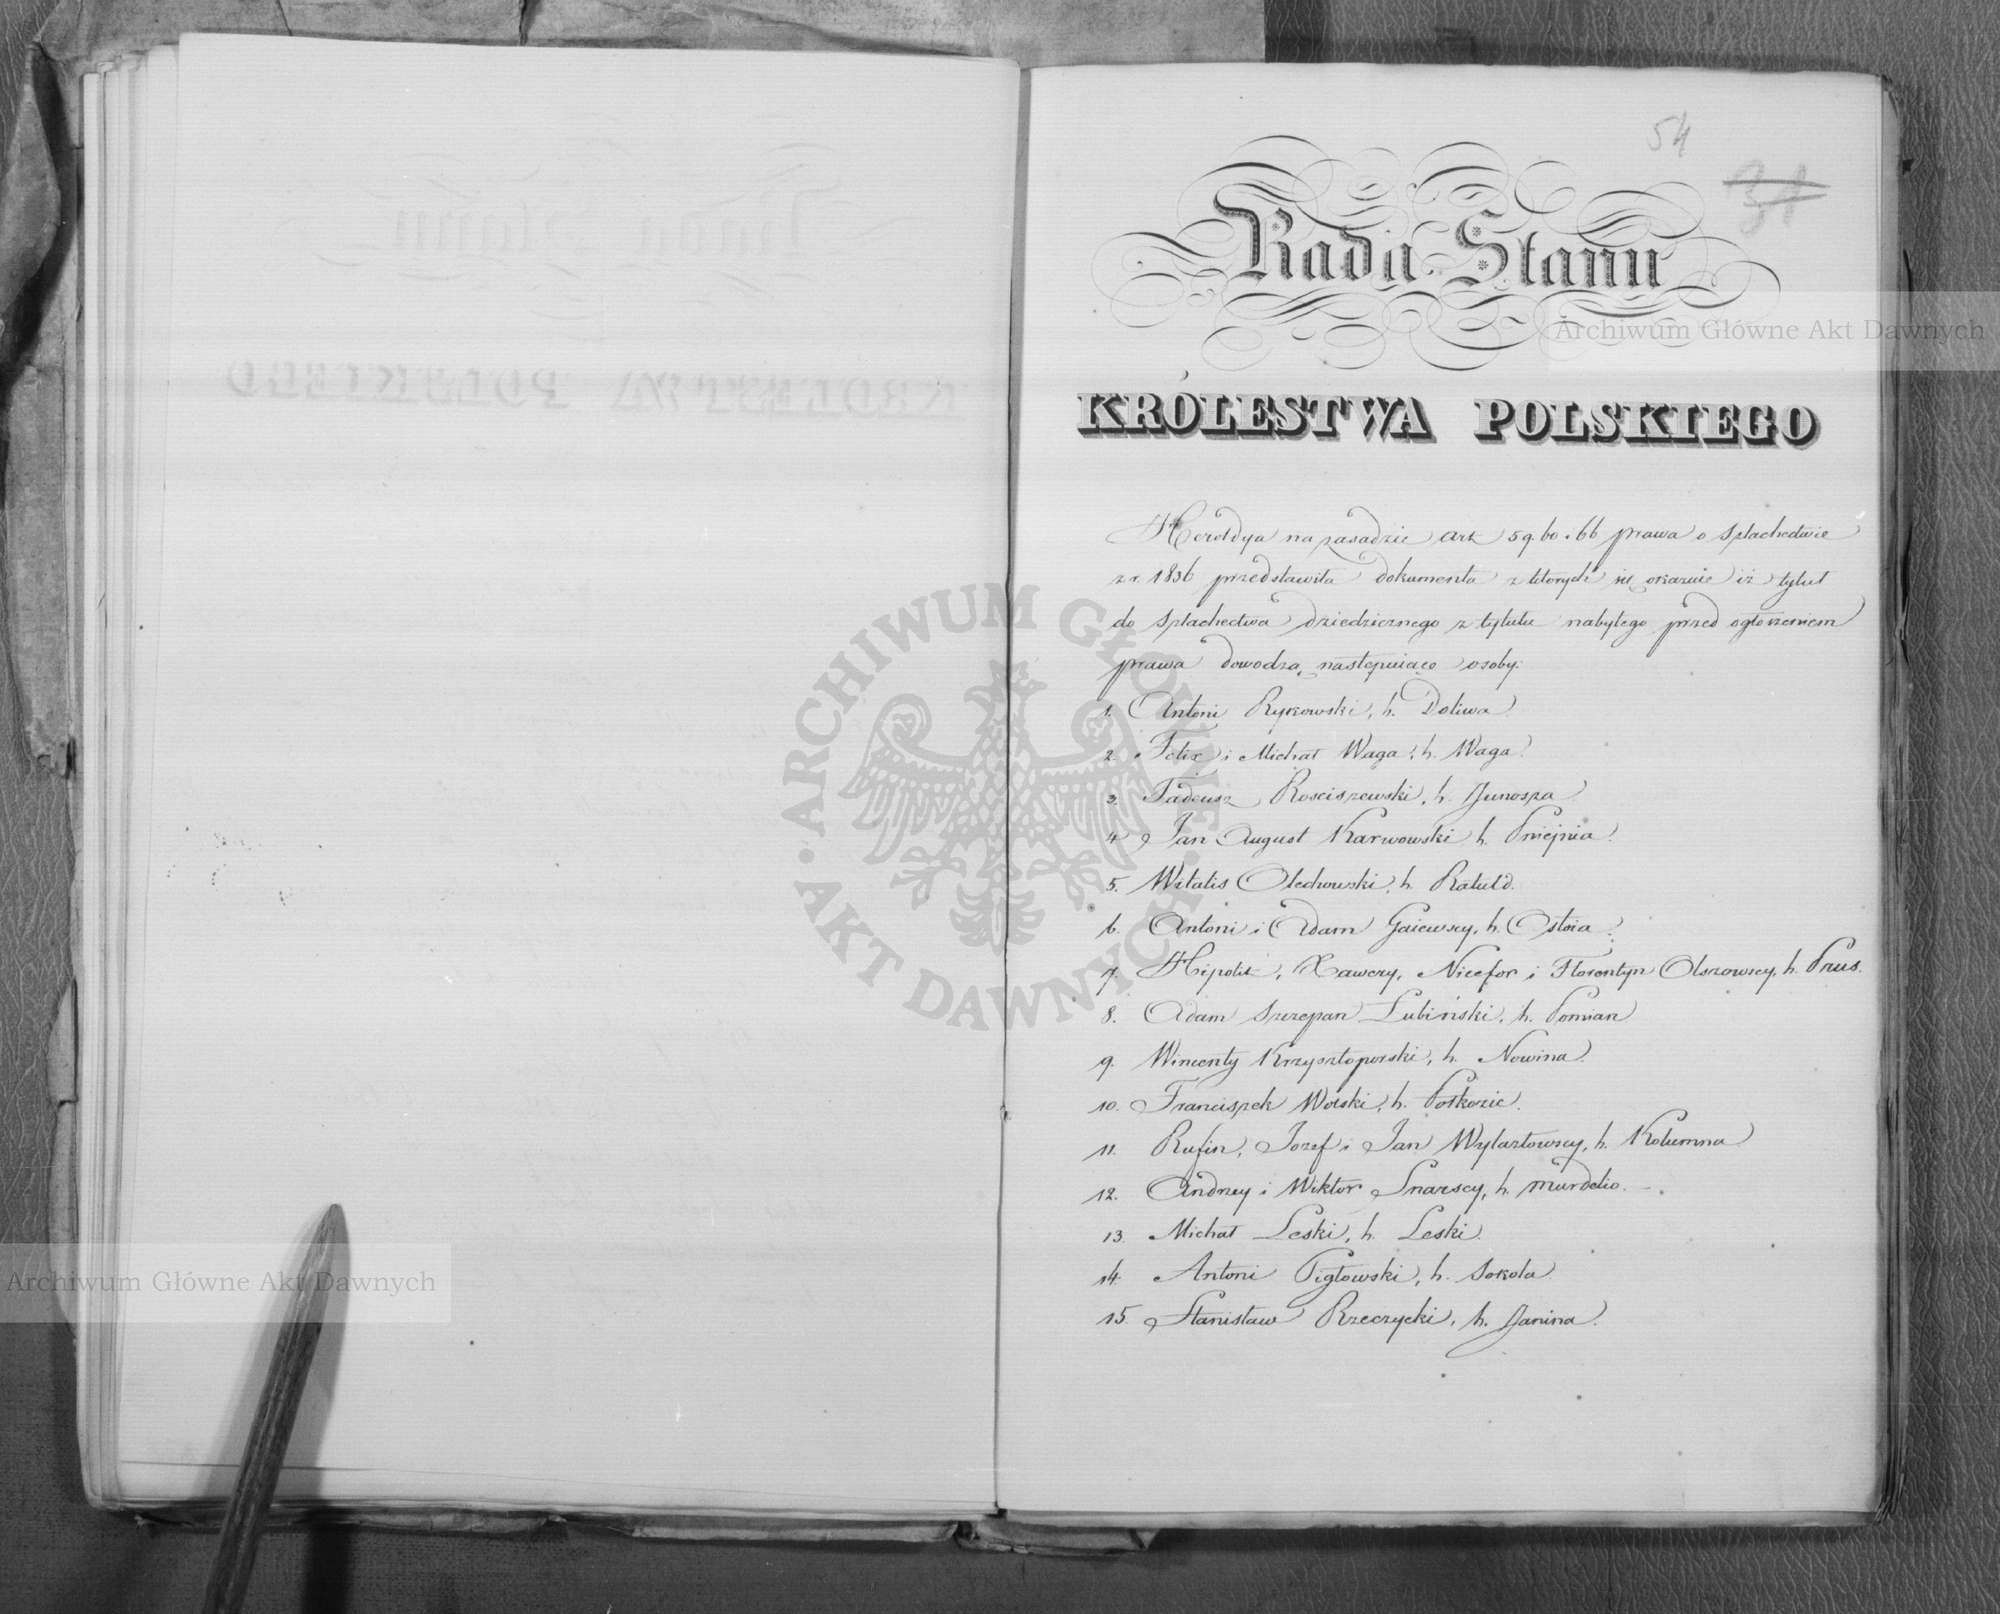 54
31
Rada Stanu
KRÓLESTWA POLSKIEGO
Heroldya na zasadzie art 59. 60 i 66 prawa o Szlachectwie
z r. 1836 przedstawiła dokumenta z których się okazuie iż tytuł
do szlachectwa dziedzicznego z tytułu nabytego przed ogłoszeniem
prawa dowodzą następuiące osoby:
1. Antoni Rykowski, h. Doliwa.
2. Felix i Michał Waga, h. Waga.
3. Tadeusz Rosciszewski, h. Junosza
4 Jan August Karwowski h. Pniejnia.
5. Witalis Olechowski, h. Ratuld.
6. Antoni i Adam Gaiewscy, h. Ostoia.
7. Hipolit, Xawery, Nicefor i Florentyn Olszowscy, h. Prus.
8. Adam Szczepan Lubiński, h. Pomian
9. Wincenty Krzysztoporski, h. Nowina.
10. Franciszek Wolski, h. Półkozic.
11. Rufin, Jozef i Jan Wylazłowscy, h. Kolumna
12. Andrzey i Wiktor Snarscy, h. Murdelio. —.
13. Michał Leski, h. Leski.
14. Antoni Pigłowski, h. Sokola.
15. Stanisław Rzeczycki, h. Janina.
Archiwum Główne Akt Dawnych
Archiwum Główne Akt Dawnych
ARCHIWUM GŁÓWNE • AKT DAWNYCH •